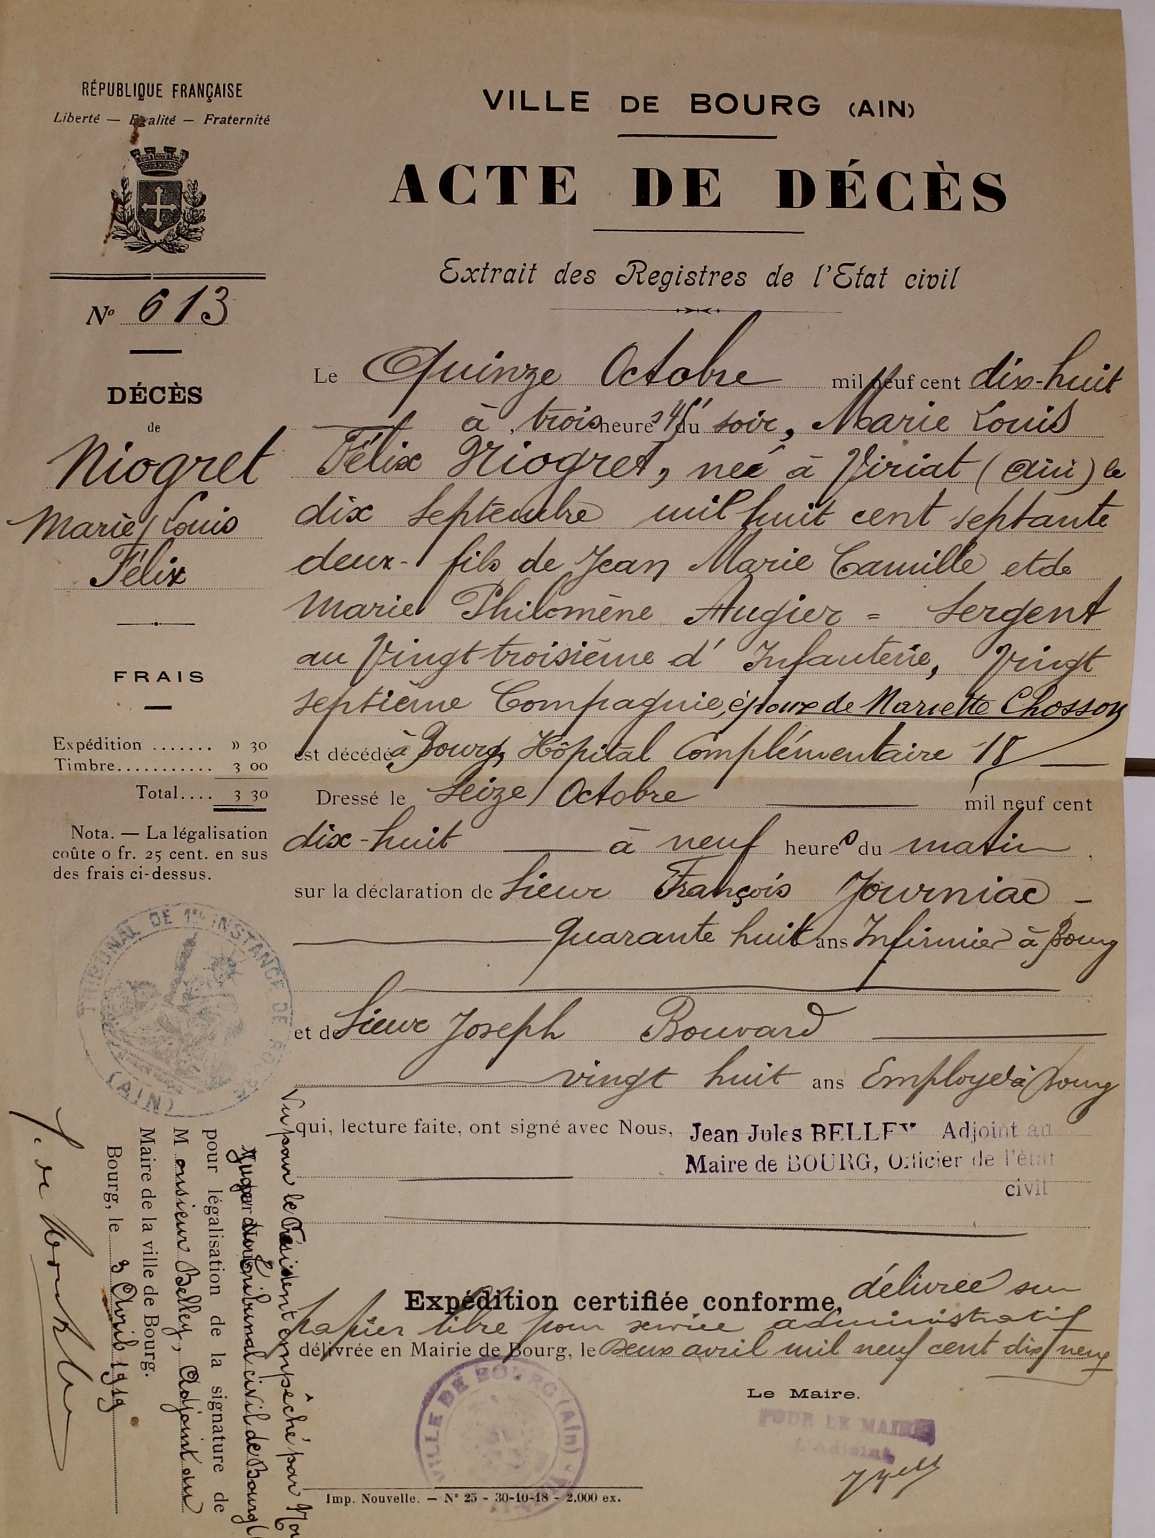 RÉPUBLIQUE FRANÇAISE
Liberté — Egalité — Fraternité
No 613
DÉCÈS
de
Niogret
Marie Louis
Félix
FRAIS
Expédition ....... » 30
Timbre........... 3 00
Total.... 3 30
Nota. — La légalisation
coûte 0 fr. 25 cent. en sus
des frais ci-dessus.
TRIBUNAL DE 1re INSTANCE DE BOURG
(AIN)
Vu par le Président empêché par
Juge au Tribunal civil de Bourg
pour légalisation de la signature de
Monsieur Belley, Adjoint au
Maire de la ville de Bourg.
Bourg, le 3 Avril 1919
VILLE DE BOURG (AIN)
ACTE DE DÉCÈS
Extrait des Registres de l'Etat civil
Le Quinze Octobre mil neuf cent dix-huit
à trois heures 45 du soir, Marie Louis
Félix Niogret, né à Viriat (Ain) le
dix septembre mil huit cent septante
deux - fils de Jean Marie Camille et de
Marie Philomène Augier = Sergent
au Vingt troisième d'Infanterie, Vingt
septième Compagnie, époux de Mariette Chosson
est décédé à Bourg, Hôpital Complémentaire 18
Dressé le seize Octobre mil neuf cent
dix-huit à neuf heures du matin
sur la déclaration de Sieur François Journiac -
quarante huit ans Infirmier à Bourg
et de Sieur Joseph Bouvard
vingt huit ans Employé à Bourg
qui, lecture faite, ont signé avec Nous, Jean Jules BELLEY Adjoint au
Maire de BOURG, Officier de l'état
civil
Expédition certifiée conforme, délivrée sur
papier libre pour service administratif
délivrée en Mairie de Bourg, le Deux avril mil neuf cent dix neuf
Le Maire.
POUR LE MAIRE
L'Adjoint
VILLE DE BOURG (Ain)
Imp. Nouvelle. — N° 25 - 30-10-18 - 2.000 ex.